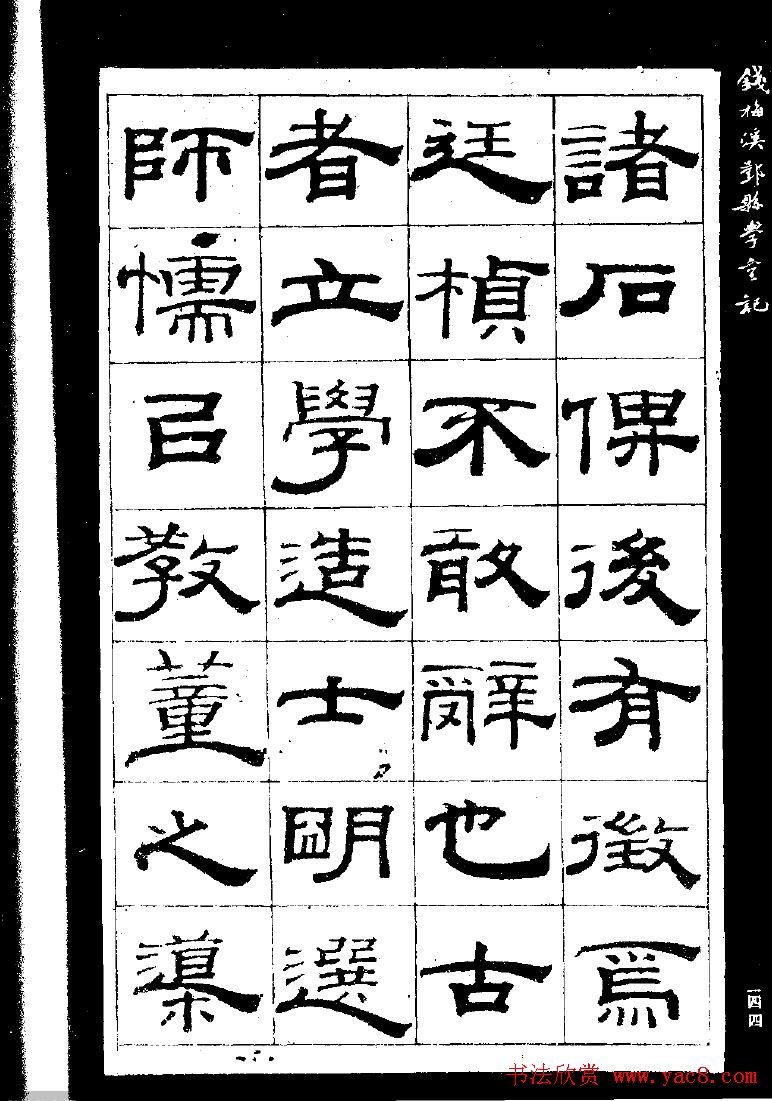 錢梅溪
縣學
記
諸石俾後有徵焉
廷楨不敢辭也古
者立學造士明選
師懦㠯教董之
一四四
书法欣赏 www.yac8.com